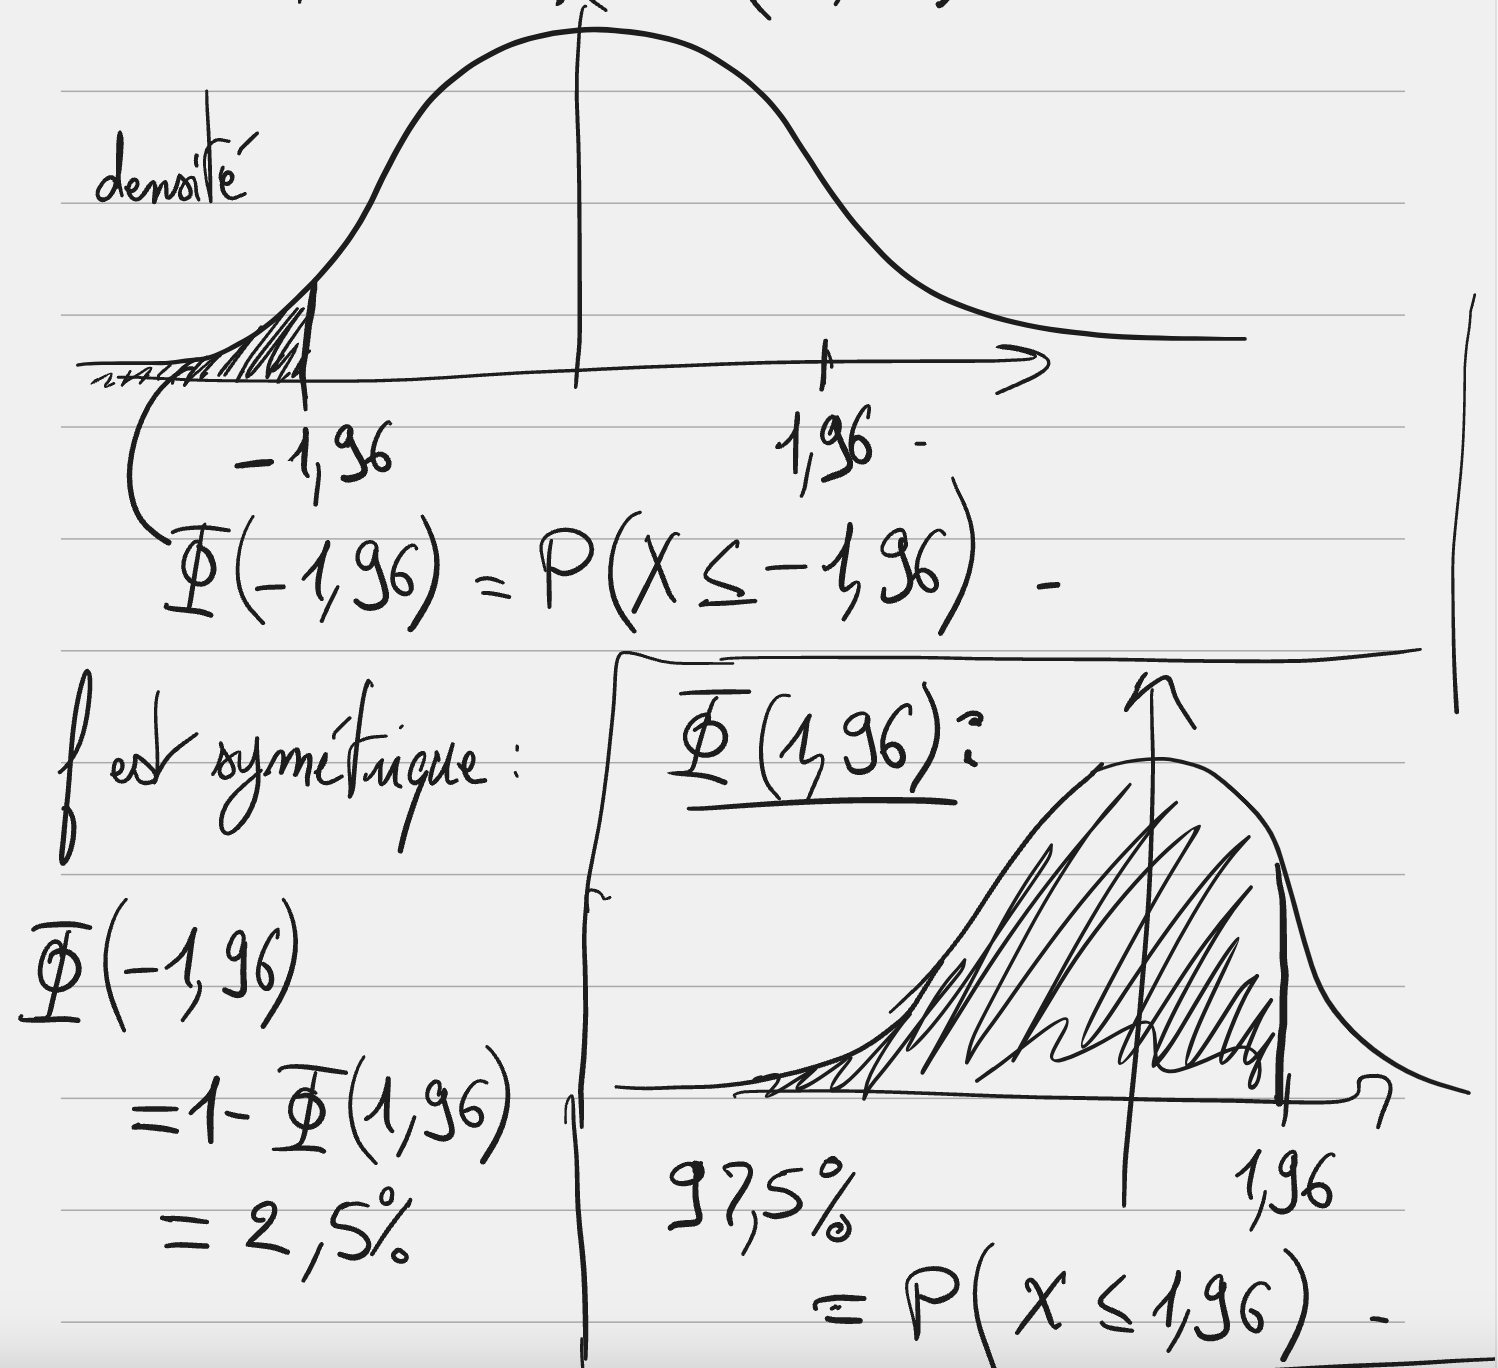 densité
-1,96
1,96 -
Φ(-1,96) = P(X ≤ -1,96) -
f est symétrique :
Φ(-1,96)
= 1 - Φ(1,96)
= 2,5%
Φ(1,96) :
1,96
97,5%
= P(X ≤ 1,96) -